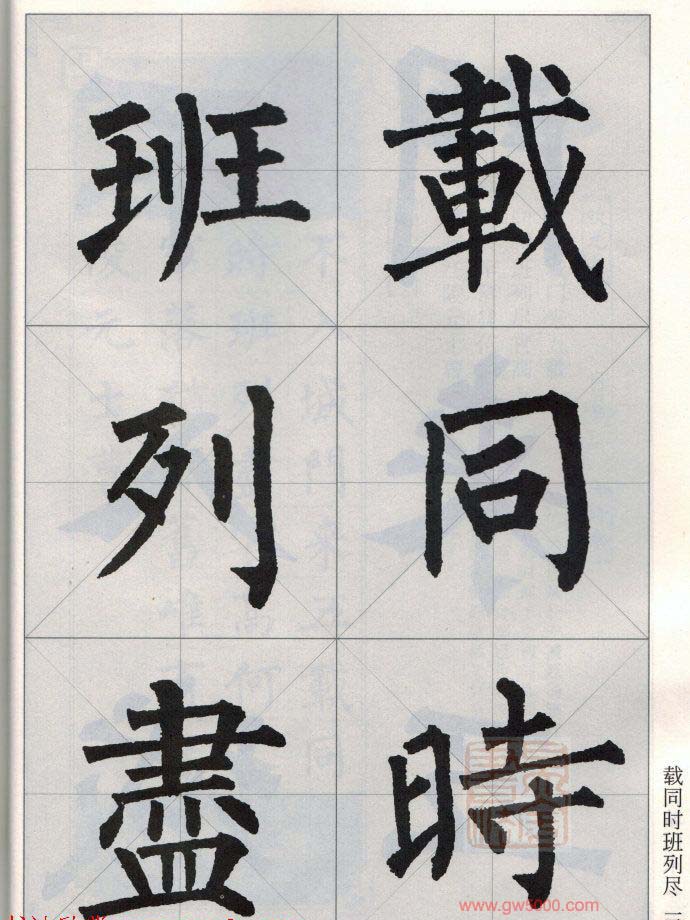 載同時
班列盡
载同时班列尽
www.gw5000.com